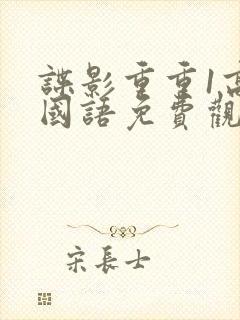 諜影重重1高
國語免費觀
宋長士